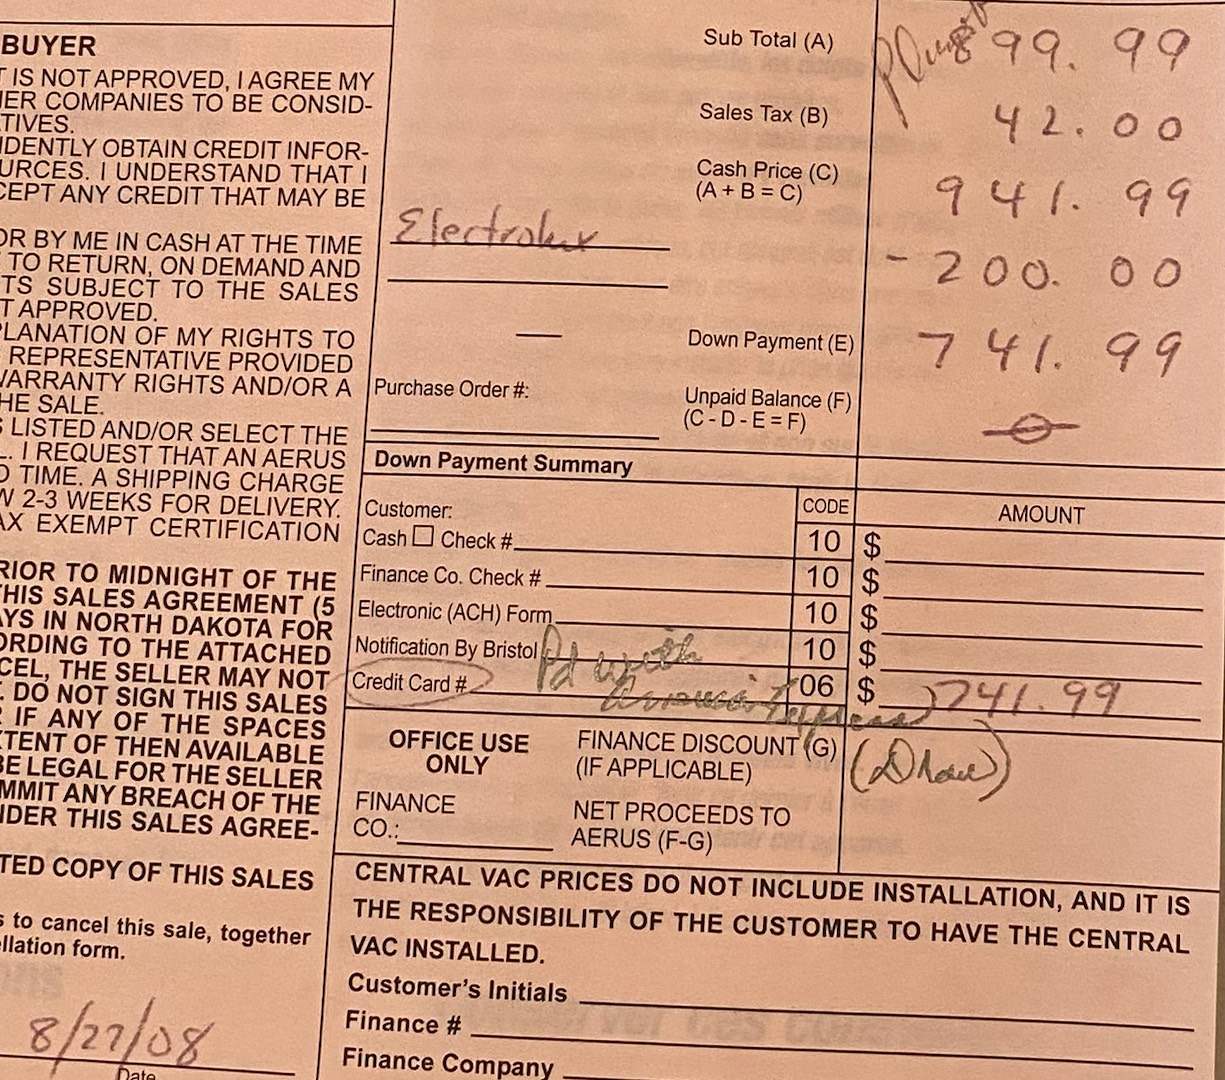 BUYER
T IS NOT APPROVED, I AGREE MY
HER COMPANIES TO BE CONSID-
TIVES.
DENTLY OBTAIN CREDIT INFOR-
URCES. I UNDERSTAND THAT I
CEPT ANY CREDIT THAT MAY BE
OR BY ME IN CASH AT THE TIME
TO RETURN, ON DEMAND AND
TS SUBJECT TO THE SALES
T APPROVED.
PLANATION OF MY RIGHTS TO
REPRESENTATIVE PROVIDED
WARRANTY RIGHTS AND/OR A
HE SALE.
S LISTED AND/OR SELECT THE
L. I REQUEST THAT AN AERUS
D TIME. A SHIPPING CHARGE
W 2-3 WEEKS FOR DELIVERY.
AX EXEMPT CERTIFICATION
RIOR TO MIDNIGHT OF THE
THIS SALES AGREEMENT (5
AYS IN NORTH DAKOTA FOR
ORDING TO THE ATTACHED
CEL, THE SELLER MAY NOT
. DO NOT SIGN THIS SALES
IF ANY OF THE SPACES
XTENT OF THEN AVAILABLE
BE LEGAL FOR THE SELLER
MMIT ANY BREACH OF THE
NDER THIS SALES AGREE-
TED COPY OF THIS SALES
s to cancel this sale, together
ellation form.
8/27/08
Date
Sub Total (A) 899.99
Sales Tax (B) 42.00
Cash Price (C) 941.99
(A + B = C)
Electrolux - 200.00
— Down Payment (E) 741.99
Purchase Order #: Unpaid Balance (F)
(C - D - E = F)
Down Payment Summary
CODE AMOUNT
Customer:
Cash Check # 10 $
Finance Co. Check # 10 $
Electronic (ACH) Form 10 $
Notification By Bristol 10 $
Pd with
Credit Card # 06 $ 741.99
American Express
OFFICE USE FINANCE DISCOUNT (G)
ONLY (IF APPLICABLE)
FINANCE NET PROCEEDS TO
CO.: AERUS (F-G)
CENTRAL VAC PRICES DO NOT INCLUDE INSTALLATION, AND IT IS
THE RESPONSIBILITY OF THE CUSTOMER TO HAVE THE CENTRAL
VAC INSTALLED.
Customer's Initials
Finance #
Finance Company